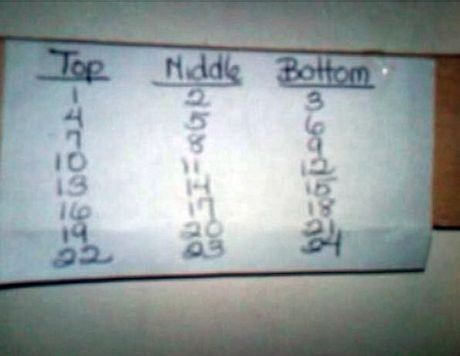 Top Middle Bottom
1 2 3
4 5 6
7 8 9
10 11 12
13 14 15
16 17 18
19 20 21
22 23 24